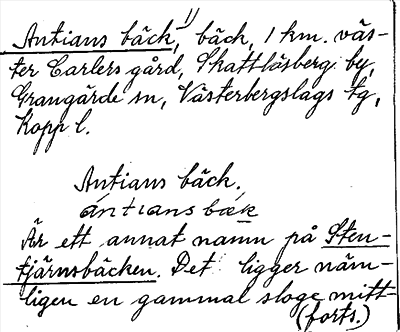 Antians bäck, 1) bäck, 1 km. väs-
ter Carlers gård, Skattlösberg by,
Grangärde sn, Västerbergslags tg,
Kopp l.
Antians bäck.
ántians bæk
Är ett annat namn på Sten-
tjärnsbäcken. Det ligger näm-
ligen en gammal sloge mitt-
(forts.)